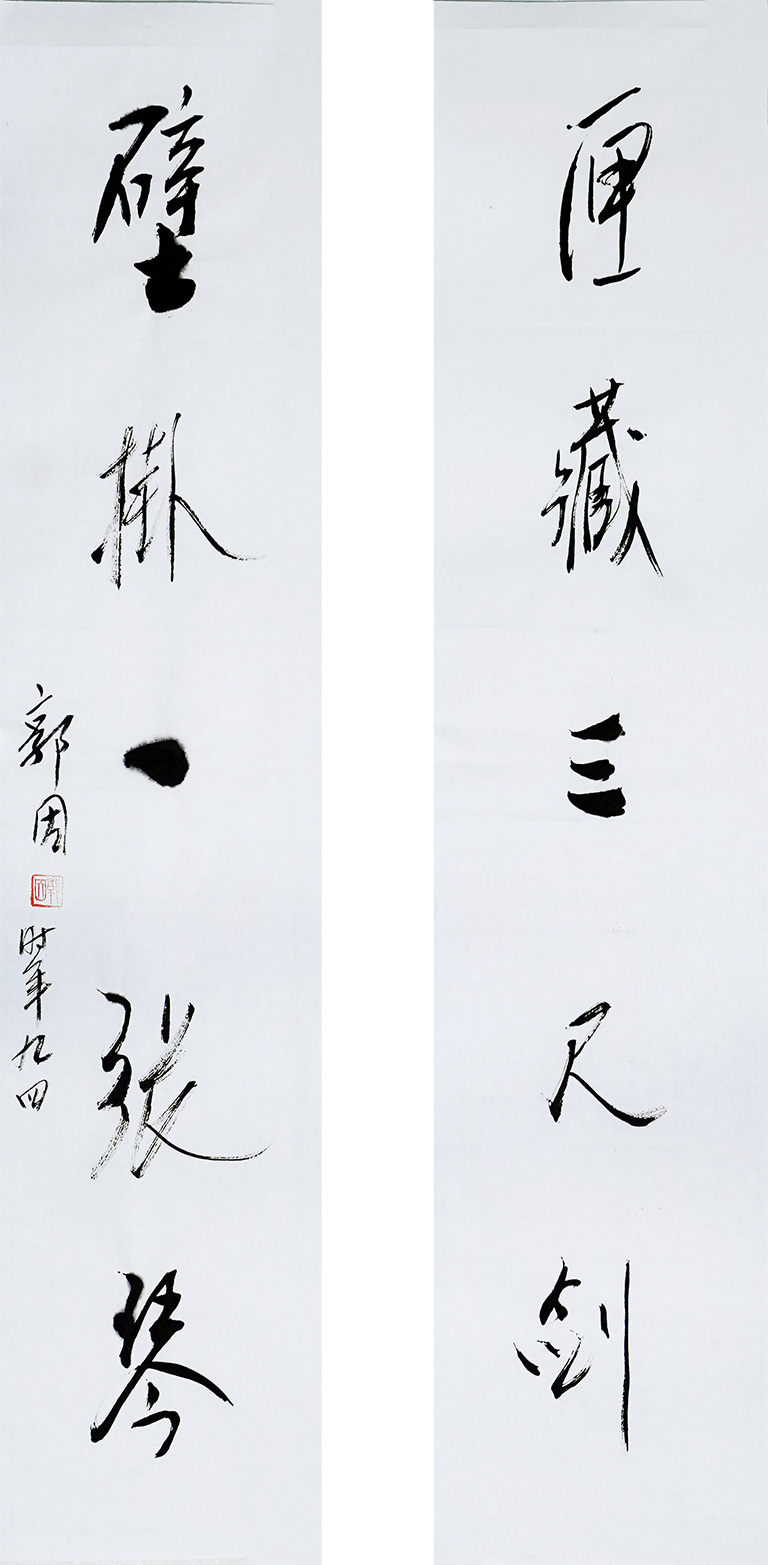 匣藏三尺剑
壁掛一张琴
郭周
时年九四